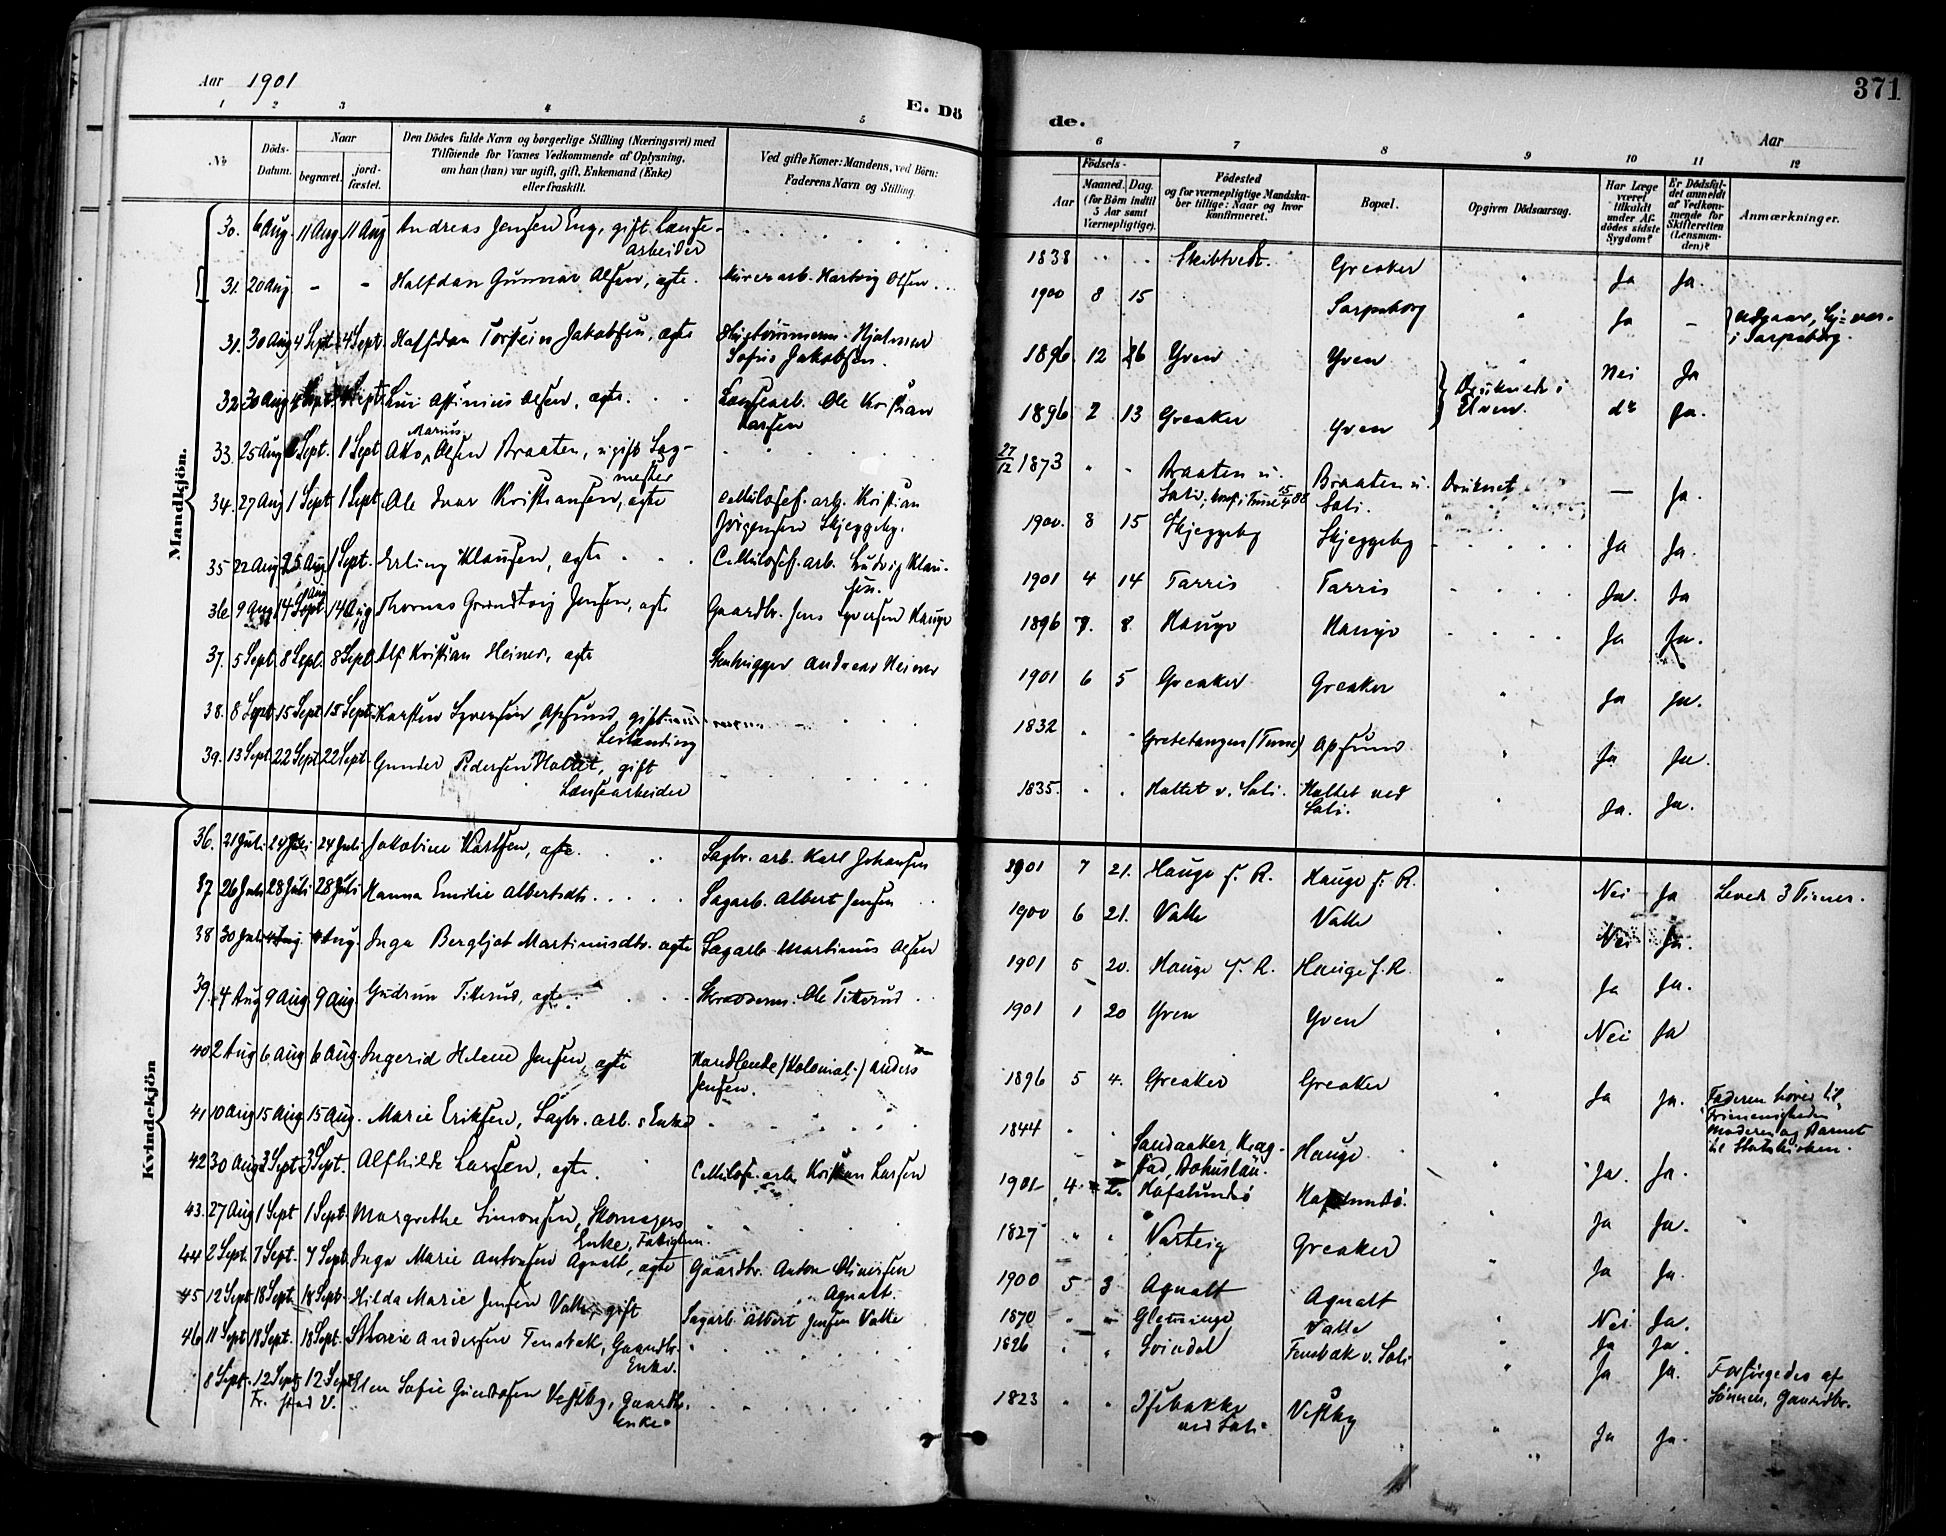 Aar 1901
E. Dö
1 2 3 4 5
No
Döds-
Datum.
Naar
begravet.
jord-
fæstet.
Den Dödes fulde Navn og borgerlige Stilling (Næringsvei) med
Tilföiende for Voxnes Vedkommende af Oplysning,
om han (hun) var ugift, gift, Enkemand (Enke)
eller fraskilt.
Ved gifte Koner: Mandens, ved Börn:
Faderens Navn og Stilling.
Mandkjön.
30. 6 Aug. 11 Aug 11 Aug Andreas Jensen Eng, gift Lænse-
arbeider
31. 20 Aug - - Halfdan Gunnar Olsen, ægte. Murerarb. Hartvig Olsen
31. 30 Aug 4 Sept 4 Sept. Halfdan Torstein Jakobsen, ægte Hjalmar
Sofus Jakobsen.
32 30 Aug Olsen, ægte. Lænsearb. Ole Kristian
Larsen
Marius
33. 25 Aug 1 Sept. 1 Sept Otto Olsen Braaten, ugift Sag-
mester
34. 27 Aug 1 Sept 1 Sept. Ole Ivar Kristiansen, ægte Cellulosef. arb. Kristian
Jörgensen Skjeggeby.
35 22 Aug 25 Aug 1 Sept. Erling Klausen, ægte Cellulosef. arb. Ludvig Klau-
sen.
36 9 Aug 14 Aug 14 Aug Thomas Grundtvig Jensen, ægte Gaardbr. Jens Iversen Hauge
37. 5 Sept. 8 Sept. 8 Sept. Alf Kristian Heiner, ægte Stenhugger Andreas Heiner
38. 8 Sept. 15 Sept 15 Sept. Karsten Syversen Opsund, gift
39. 13 Sept. 22 Sept 22 Sept. Gunder Pedersen Holtet, gift
Lænsearbeider
Kvindekjön
36. 21 Juli 24 Juli 24 Juli Jakobine Karlsen, ægte Sagbr. arb. Karl Johansen
37 26 Juli 28 Juli 28 Juli Hanna Emilie Albertsdtr. Sagarb. Albert Jensen
38 30 Juli 4 Aug. 4 Aug. Inga Bergljot Martinusdtr. ægte Sagarb Martinus Olsen
39. 4 Aug 9 Aug 9 Aug Gudrun Titterud, ægte Skrædderm. Ole Titterud
40 2 Aug 6 Aug 6 Aug. Ingerid Helene Jensen, ægte Handlende (Kolonial-) Anders
Jensen.
41 10 Aug 15 Aug 15 Aug. Marie Eriksen, Sagbr. arb. s Enke
42 30 Aug 3 Sept 3 Sept. Alfhilde Larsen, ægte. Cellulosef. arb. Kristian Larsen
43. 27 Aug 1 Sept 1 Sept. Margrethe Simonsen, Skomagers
Enke, Fattiglem.
44 2 Sept. 7 Sept. 7 Sept. Inga Marie Antonsen Agnalt, ægte Gaardbr. Anton Oliversen
Agnalt.
45 12 Sept 18 Sept 18 Sept. Hilda Marie Jensen Valle, gift Sagarb. Albert Jensen Valle
46 11 Sept 18 Sept. 18 Sept. Marie Andersen Tenebæk, Gaardbr.
Enke.
8 Sept. 12 Sept 12 Sept Elen Sofie Gundersen Vestby, Gaardbr.
Fr. stad V. Enke.
de.
Aar
371
6 7 8 9 10 11 12
Födsels-
Aar
Maaned. Dag.
(for Börn indtil
5 Aar samt
Værnepligtige).
Födested
og for værnepligtige Mandska-
ber tillige: Naar og hvor
konfirmeret.
Bopæl.
Opgiven Dödsaarsag.
Har Læge
været
tilkaldt
under Af-
dödes sidste
Sygdom?
Er Dödsfal-
det anmeldt
af Vedkom-
mende for
Skifteretten
(Lensman-
den)?
Anmærkninger.
1838 Skibtvedt. Greaker Ja Ja.
1900 8 15 Sarpsborg Ja - Udgaar,
i Sarpsborg.
1896 12 26 Yven Yven Druknede i Nei Ja
Elven.
1896 2 13 Greaker Yven do Ja.
27/12 1873 Braaten u. Braaten u. Druknet — Ja.
Soli, konf. i Tune Soli.
1900. 8 15 Skjeggeby Skjeggeby Ja Ja.
1901 4 14 Tarris Tarris Ja. Ja
1896 7. 8. Hauge Hauge Ja Ja.
1901 6 5 Greaker Greaker Ja Ja.
1832 Gretetangen (Tune) Opsund Ja Ja.
1835. Holtet v. Soli. Holtet ved Ja. Ja.
Soli.
1901 7 21. Hauge f. R. Hauge f. R. Nei Ja Leved 3 Timer.
1900 6 21. Valle Valle Nei Ja.
1901 5 20. Hauge f. R. Hauge f. R. Ja Ja.
1901 1 20 Yven Yven Nei Ja
1896 5 4. Greaker Greaker Ja Ja. Faderen hörer til
Frimenigheden
Moderen og Barnet
til Statskirken.
1844 Sandaaker, Krog- Hauge Ja. Ja.
stad, Bohuslän.
1901 4 2. Hafslundsö Hafslundsö. Ja Ja.
1827 Varteig Greaker Ja Ja.
1900 5 3 Agnalt Agnalt Nei Ja.
1870 Glemminge Valle Ja Ja.
1826 Svindal Tenebæk v. Soli Ja Ja. Forsörgedes af
Sönnen, Gaardbr.
1823 Isebakke Vestby Ja Ja.
ved Soli